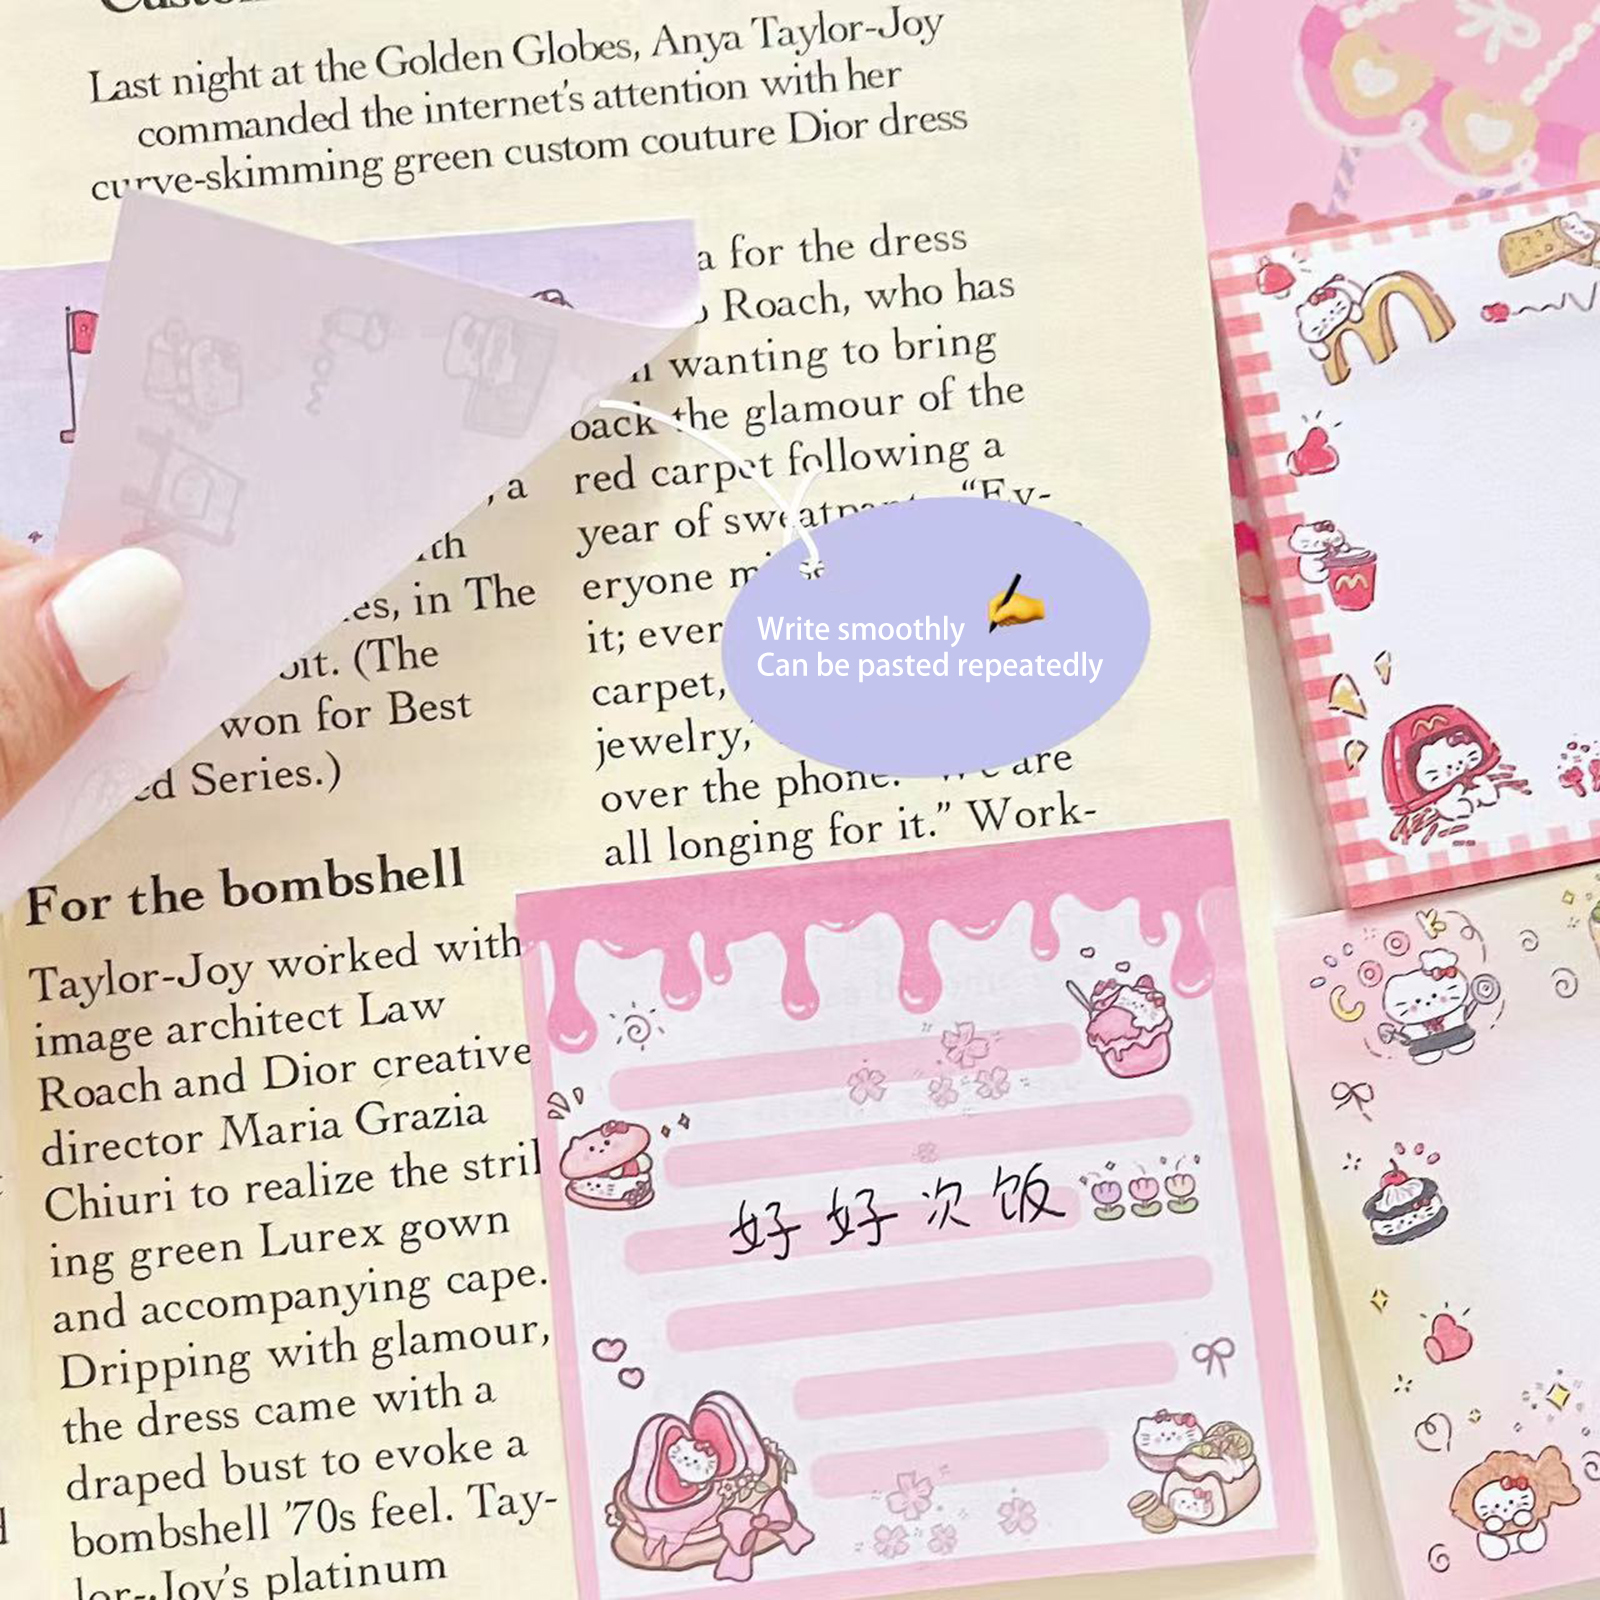 Last night at the Golden Globes, Anya Taylor-Joy
commanded the internet's attention with her
curve-skimming green custom couture Dior dress
, a
in The
(The
won for Best
Series.)
For the bombshell
Taylor-Joy worked with
image architect Law
Roach and Dior creative
director Maria Grazia
Chiuri to realize the
ing green Lurex gown
and accompanying cape.
Dripping with glamour,
the dress came with a
draped bust to evoke a
bombshell '70s feel. Tay-
lor-Joy's platinum
a for the dress
Roach, who has
wanting to bring
back the glamour of the
red carpet following a
year of "Ev-
eryone
it;
carpet,
jewelry,
over the phone. are
all longing for it." Work-
Write smoothly ✍
Can be pasted repeatedly
好好次饭